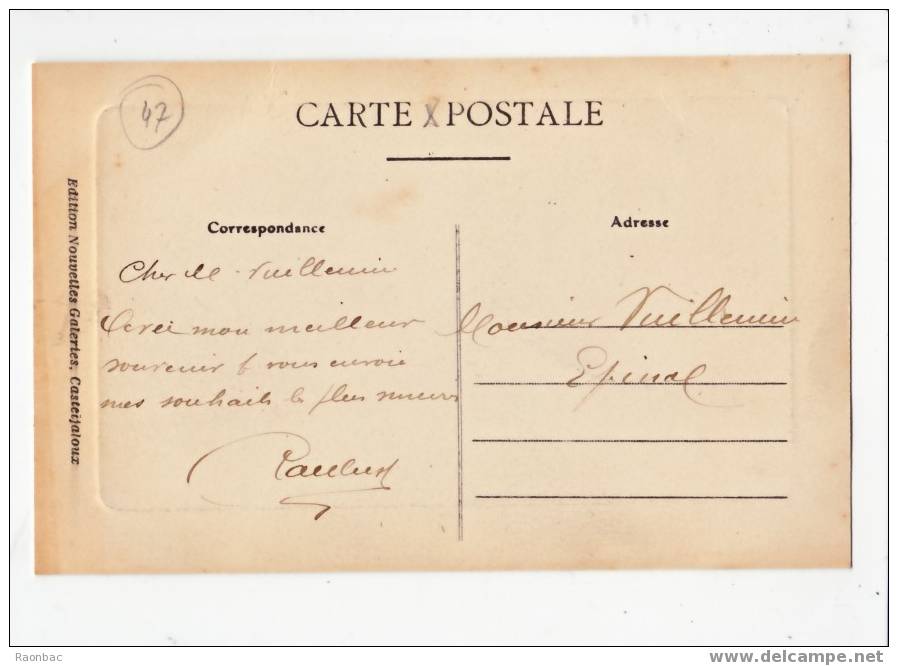 47
CARTE POSTALE
Correspondance
Adresse
Cher M. Vuillemin
mon meilleur
souvenir & vous envoie
mes souhaits les plus sincères
Monsieur Vuillemin
Epinal
Edition Nouvelles Galeries, Casteljaloux
Raonbac
www.delcampe.net